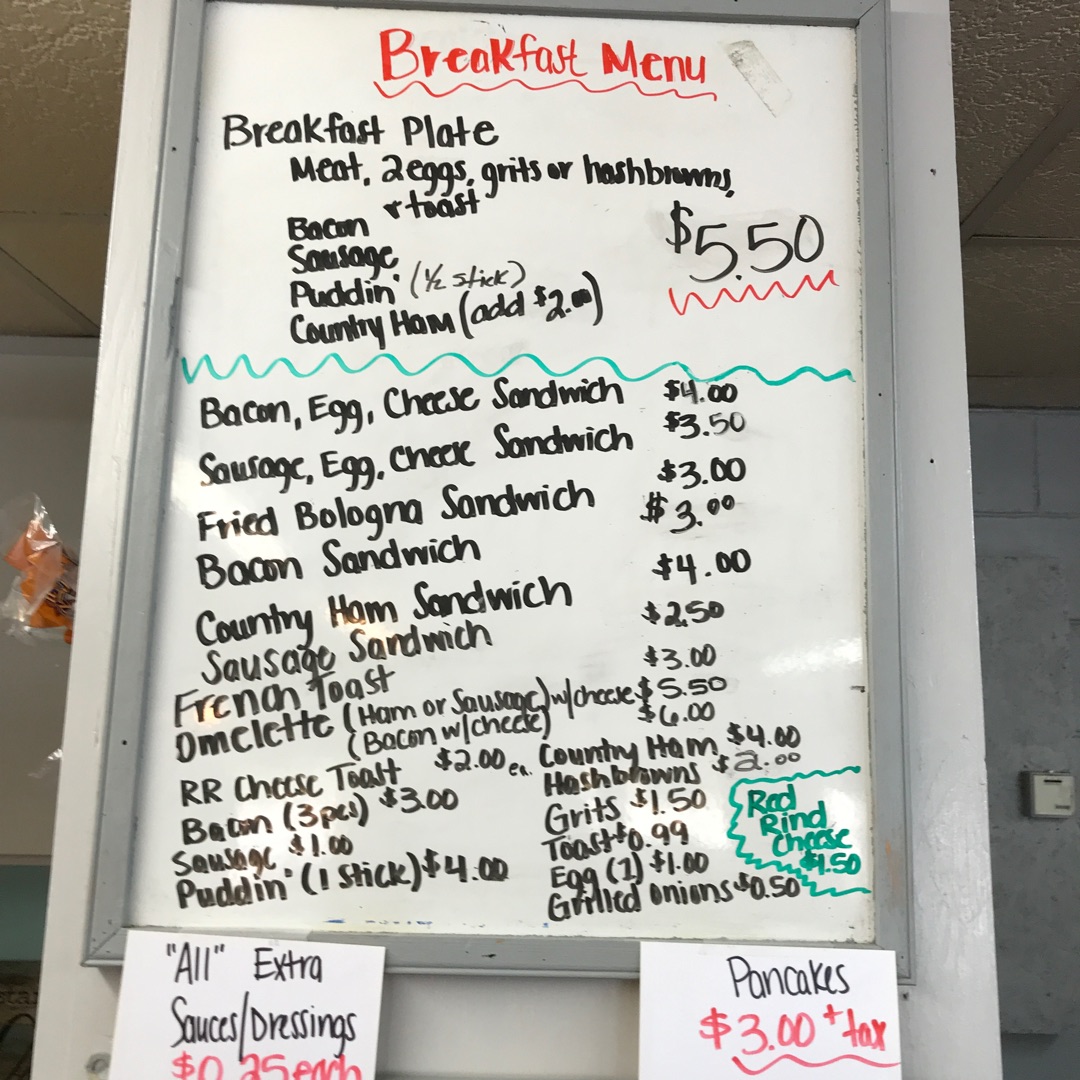 Breakfast Menu
Breakfast Plate
Meat, 2 eggs, grits or hashbrowns,
& toast
Bacon
Sausage
Puddin' (1/2 stick)
Country Ham (add $2.00)
$5.50
Bacon, Egg, Cheese Sandwich $4.00
Sausage, Egg, Cheese Sandwich $3.50
Fried Bologna Sandwich $3.00
Bacon Sandwich $3.00
Country Ham Sandwich $4.00
Sausage Sandwich $2.50
French Toast $3.00
Omelette (Ham or Sausage) w/cheese $5.50
(Bacon w/cheese) $6.00
RR Cheese Toast $2.00 ea.
Bacon (3pcs) $3.00
Sausage $1.00
Puddin' (1 stick) $4.00
Country Ham $4.00
Hashbrowns $2.00
Grits $1.50
Toast $0.99
Egg (1) $1.00
Grilled onions $0.50
Red
Rind
Cheese
$1.50
"All" Extra
Sauces/Dressings
$0.25 each
Pancakes
$3.00 + tax